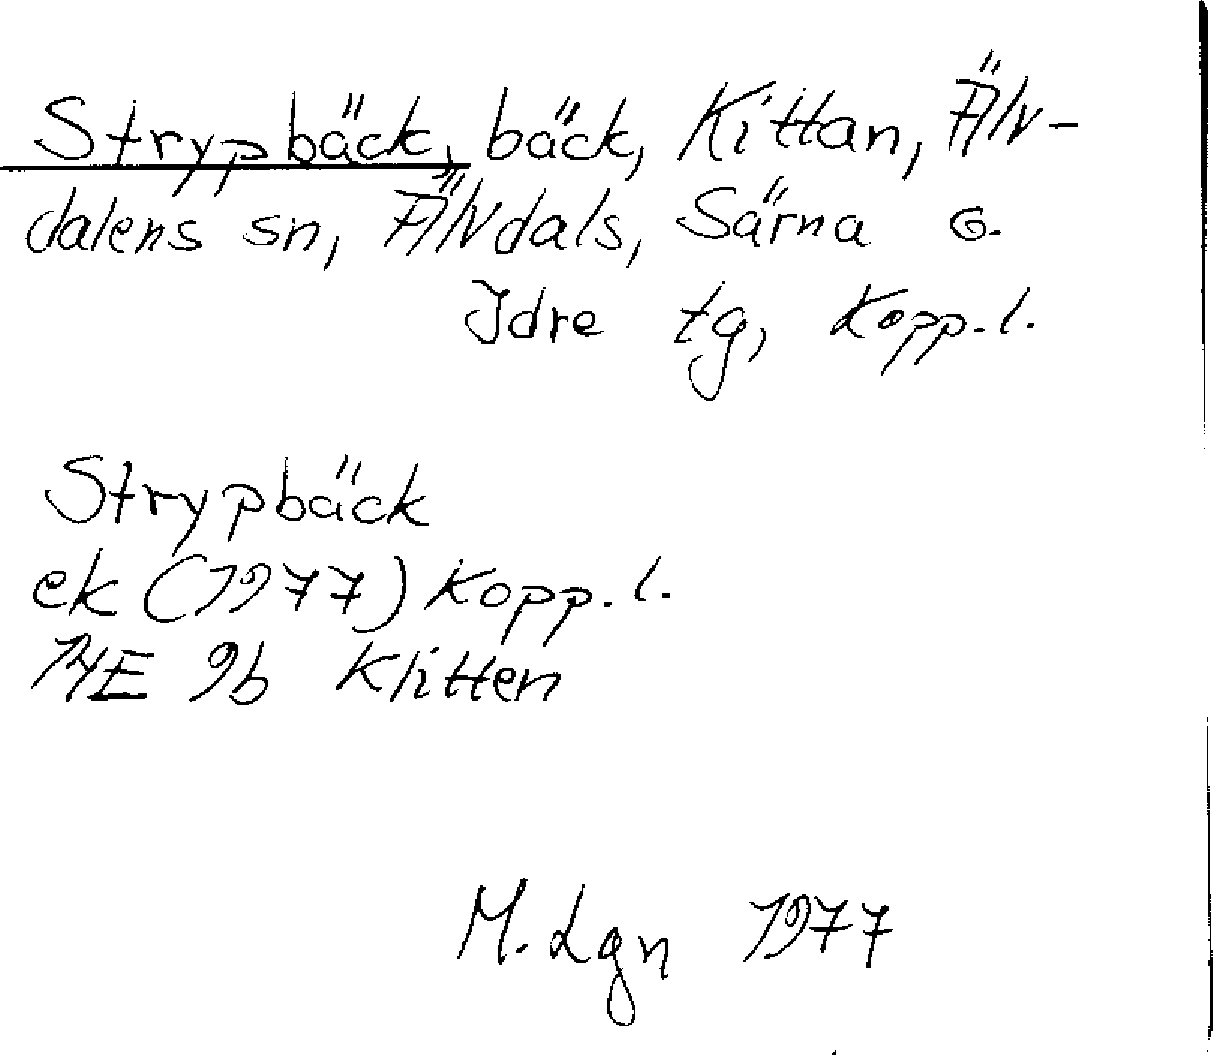 Strypbäck, bäck, Kittan, Älv-
dalens sn, Älvdals, Särna o.
Idre tg, Kopp. l.
Strypbäck
ek (1977) Kopp. l.
14E 9b Klitten
M. Lgn 1977